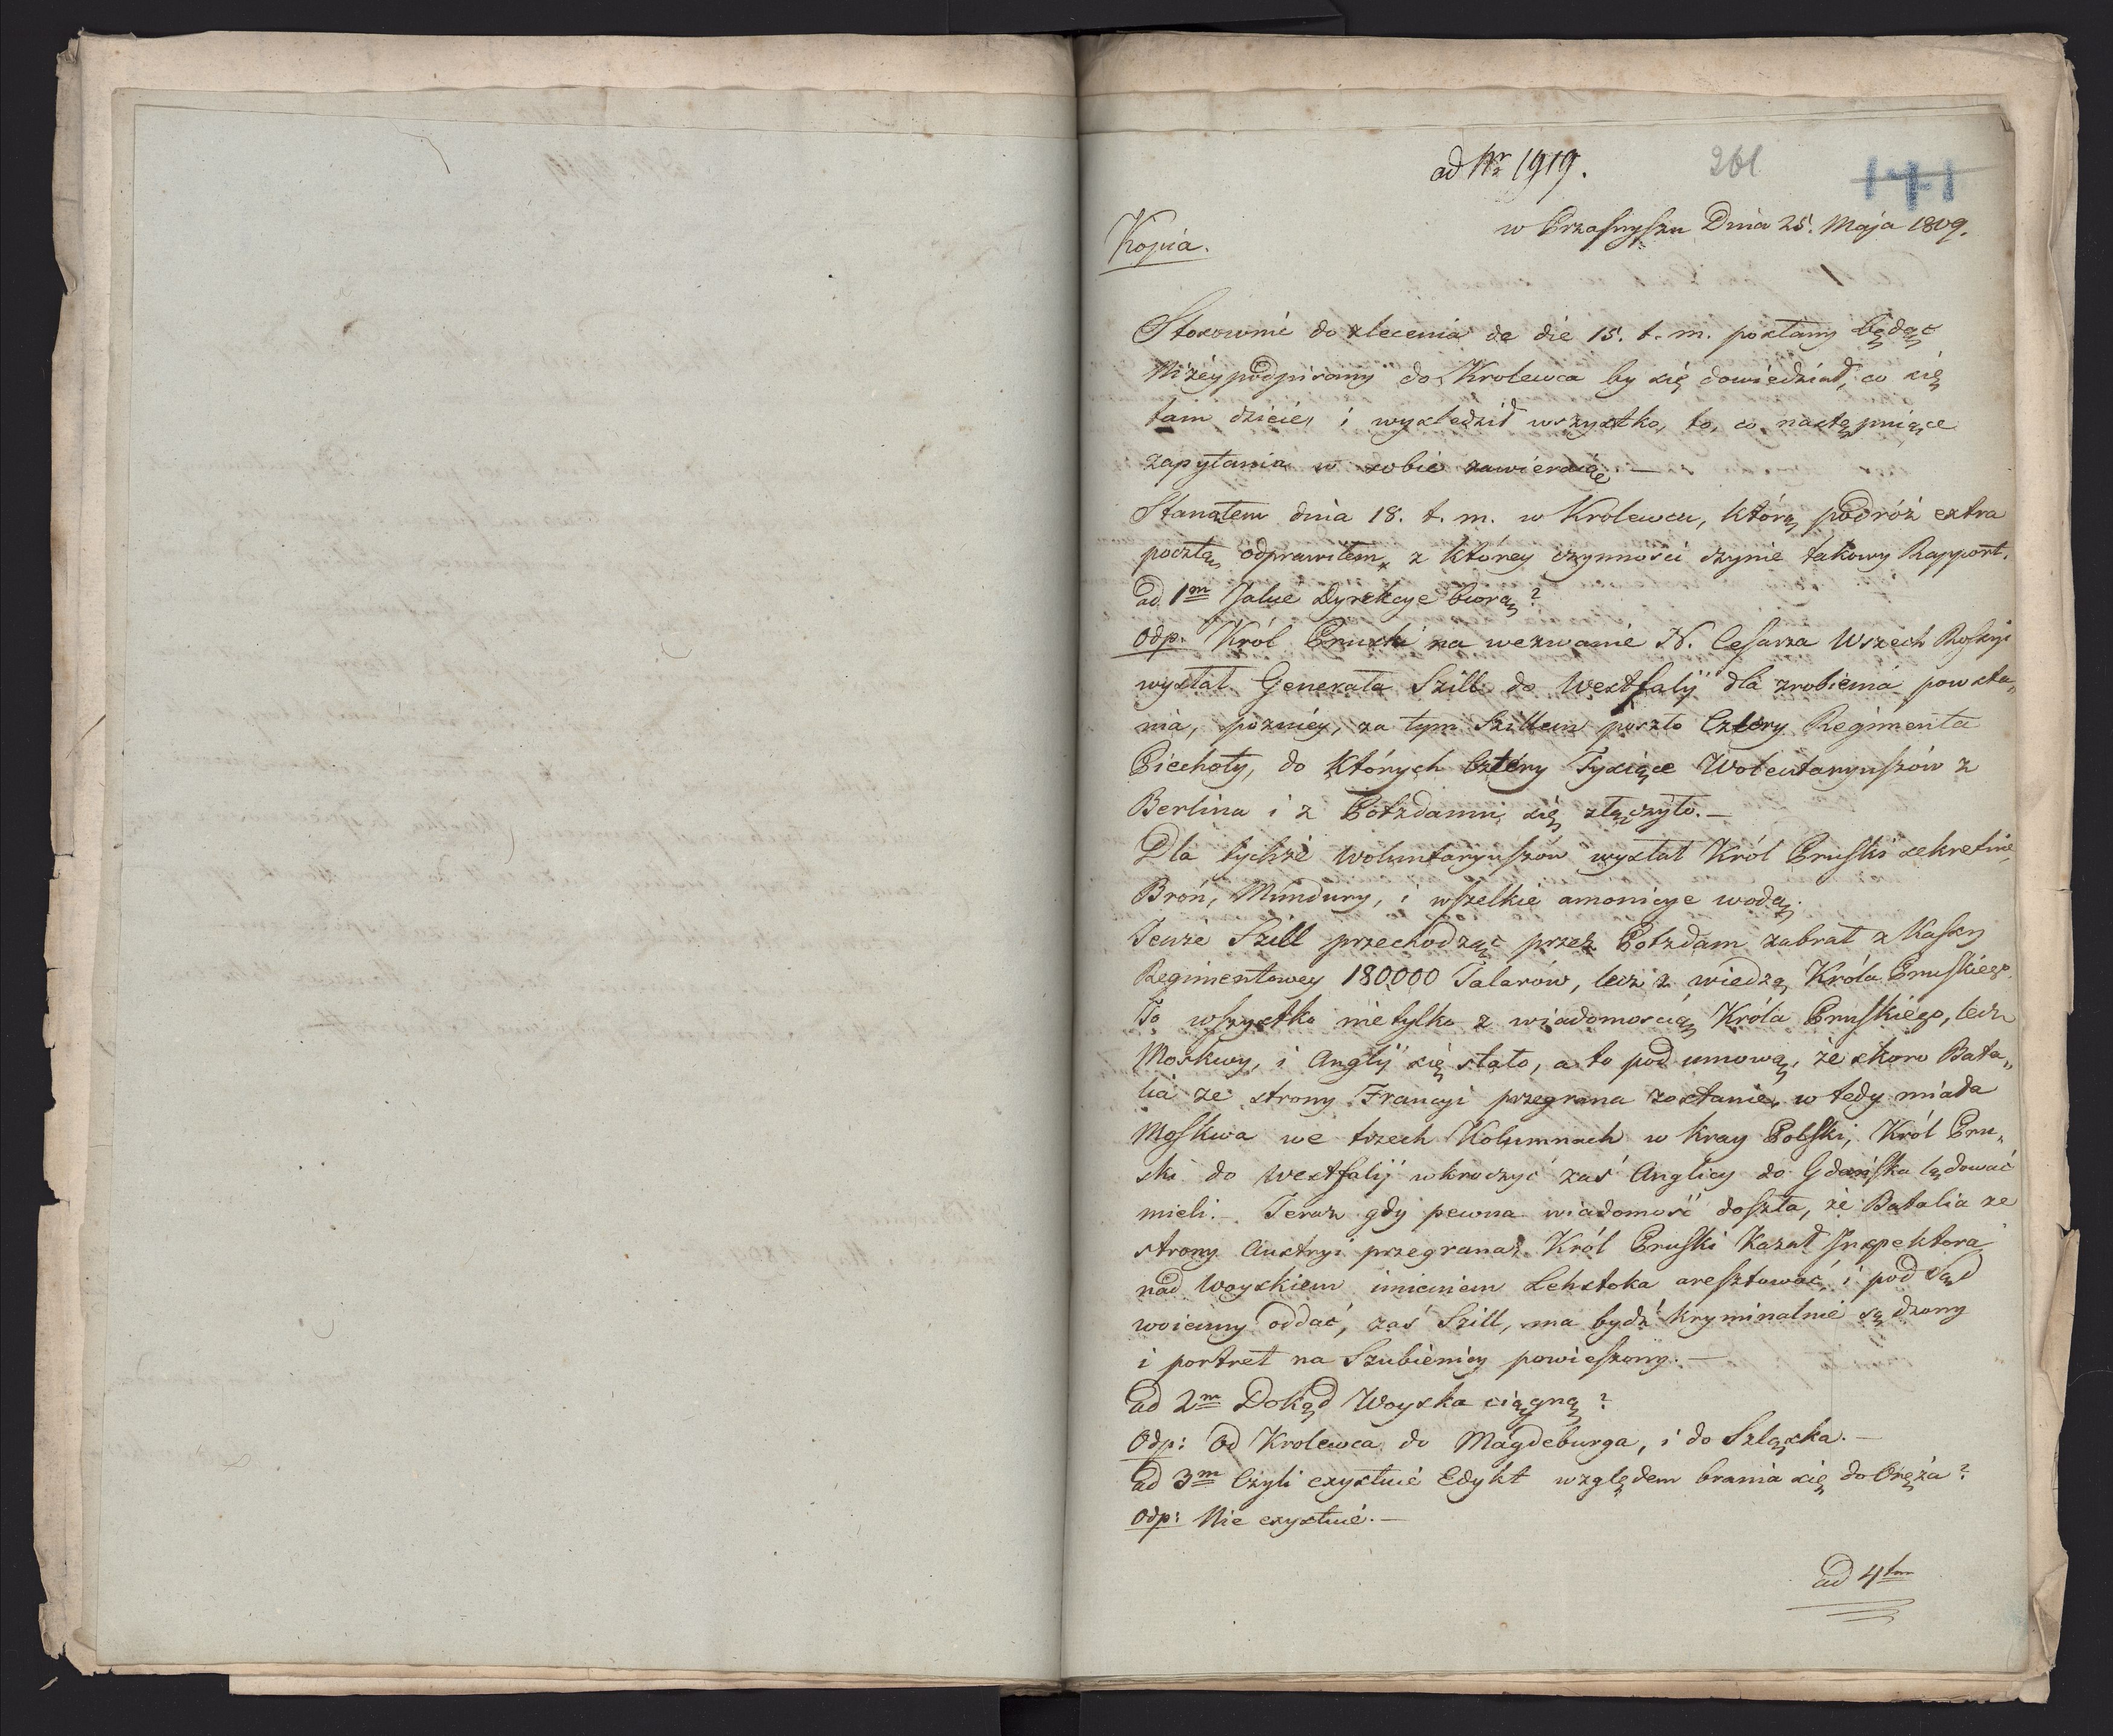 ad Nr 1919.
261
141
w Przasnyszu Dnia 25. Maja 1809.
Kopia.
Stosownie do zlecenia de die 15. t. m. posłany będąc
Niżéy podpisany do Krolewca by się dowiedział, co się
tam dzieie, i wyśledził wszystko, to, co następuiące
zapytania w sobie zawieraią —
Stanąłem dnia 18. t. m. w Krolewcu, którą podróż extra
pocztą odprawiłem, z któréy czynności czynie takowy Rapport.
ad 1m Jakie Dyrekcye biorą?
Odp. Król Pruski na wezwanie N. Cesarza Wszech Rossyi
wysłał Generała Szill do Westfalij dla zrobienia powsta„
nia, pozniéy, za tym Szillem poszło Cztery Regimenta
Piechoty, do których Cztéry Tysiące Wolentaryuszów z
Berlina i z Potzdamu się złączyło. —
Dla tychże Woluntaryuszów wysłał Król Pruski sekretnie,
Broń, Mundury, i wszelkie amonicye wodą.
Tenże Szill przechodząc przez Potzdam zabrał z Kassy
Regimentowey 180000 Talarów, lecz z wiedzą Króla Pruskiego.
To wszystko nietylko z wiadomością Króla Pruskiégo, lecz
Moskwy, i Anglij się stało, a to pod umową, że skoro Bata„
lia ze strony Francyi przegrana zostanie, w tedy miała
Moskwa we trzech Kolumnach w Kray Polski, Król Pru„
ski do Westfalij wkroczyć zaś Anglicy do Gdańska lądować
mieli. — Teraz gdy pewna wiadomość doszła, że Batalia ze
strony Austryi przegrana, Król Pruski Kazał Inspektora
nad Woyskiem imieniem Lehstoka aresztować, i pod Sąd
woienny oddać, zaś Szill, ma bydź kryminalnie sądzony
i portret na Szubienicy powieszony. —
ad 2m Dokąd Woyska ciągną?
Odp: Od Krolewca do Magdeburga, i do Szląska. —
ad 3m Czyli exystuie Edykt względem brania się do Oręża?
Odp: Nie exystuie. —
ad 4tm